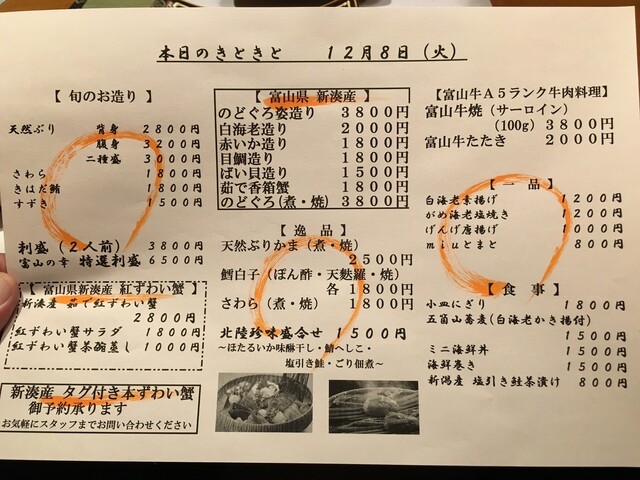 本日のきときと 12月8日（火）
【 旬のお造り 】
天然ぶり 背身 2800円
腹身 3200円
二種盛 3000円
さわら 1800円
きはだ鮪 1800円
すずき 1500円
利盛（２人前） 3800円
富山の幸 特選利盛 6500円
【富山県新湊産 紅ずわい蟹】
新湊産 茹で紅ずわい蟹
2800円
紅ずわい蟹サラダ 1800円
紅ずわい蟹茶碗蒸し 1000円
新湊産 タグ付き本ずわい蟹
御予約承ります
お気軽にスタッフまでお問い合わせください
【 富山県 新湊産 】
のどぐろ姿造り 3800円
白海老造り 2000円
赤いか造り 1800円
目鯛造り 1800円
ばい貝造り 1500円
茹で香箱蟹 1800円
のどぐろ(煮・焼) 3800円
【 逸 品 】
天然ぶりかま（煮・焼）
2500円
鱈白子（ぽん酢・天麩羅・焼）
各 1800円
さわら（煮・焼） 1800円
北陸珍味盛合せ 1500円
～ほたるいか味醂干し・鯖へしこ・
塩引き鮭・ごり佃煮～
【富山牛Ａ５ランク牛肉料理】
富山牛焼（サーロイン）
(100g) 3800円
富山牛たたき 2000円
【 一 品 】
白海老素揚げ 1200円
がめ海老塩焼き 1200円
げんげ唐揚げ 1000円
miuとまと 800円
【 食 事 】
小皿にぎり 1800円
五箇山蕎麦(白海老かき揚付)
1500円
ミニ海鮮丼 1500円
海鮮巻き 1500円
新潟産 塩引き鮭茶漬け 800円